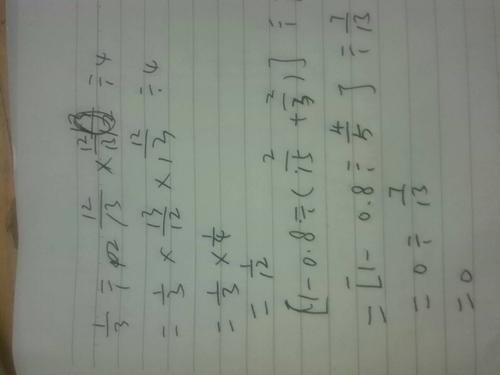 1/3 ÷ 12/13 × 12/13 ÷ 4
= 1/3 × 13/12 × 12/13 ÷ 4
= 1/3 × 1/4
= 1/12
[1-0.8÷(2/15+2/3)]÷
=[1-0.8÷4/5]÷7/13
=0÷7/13
=0